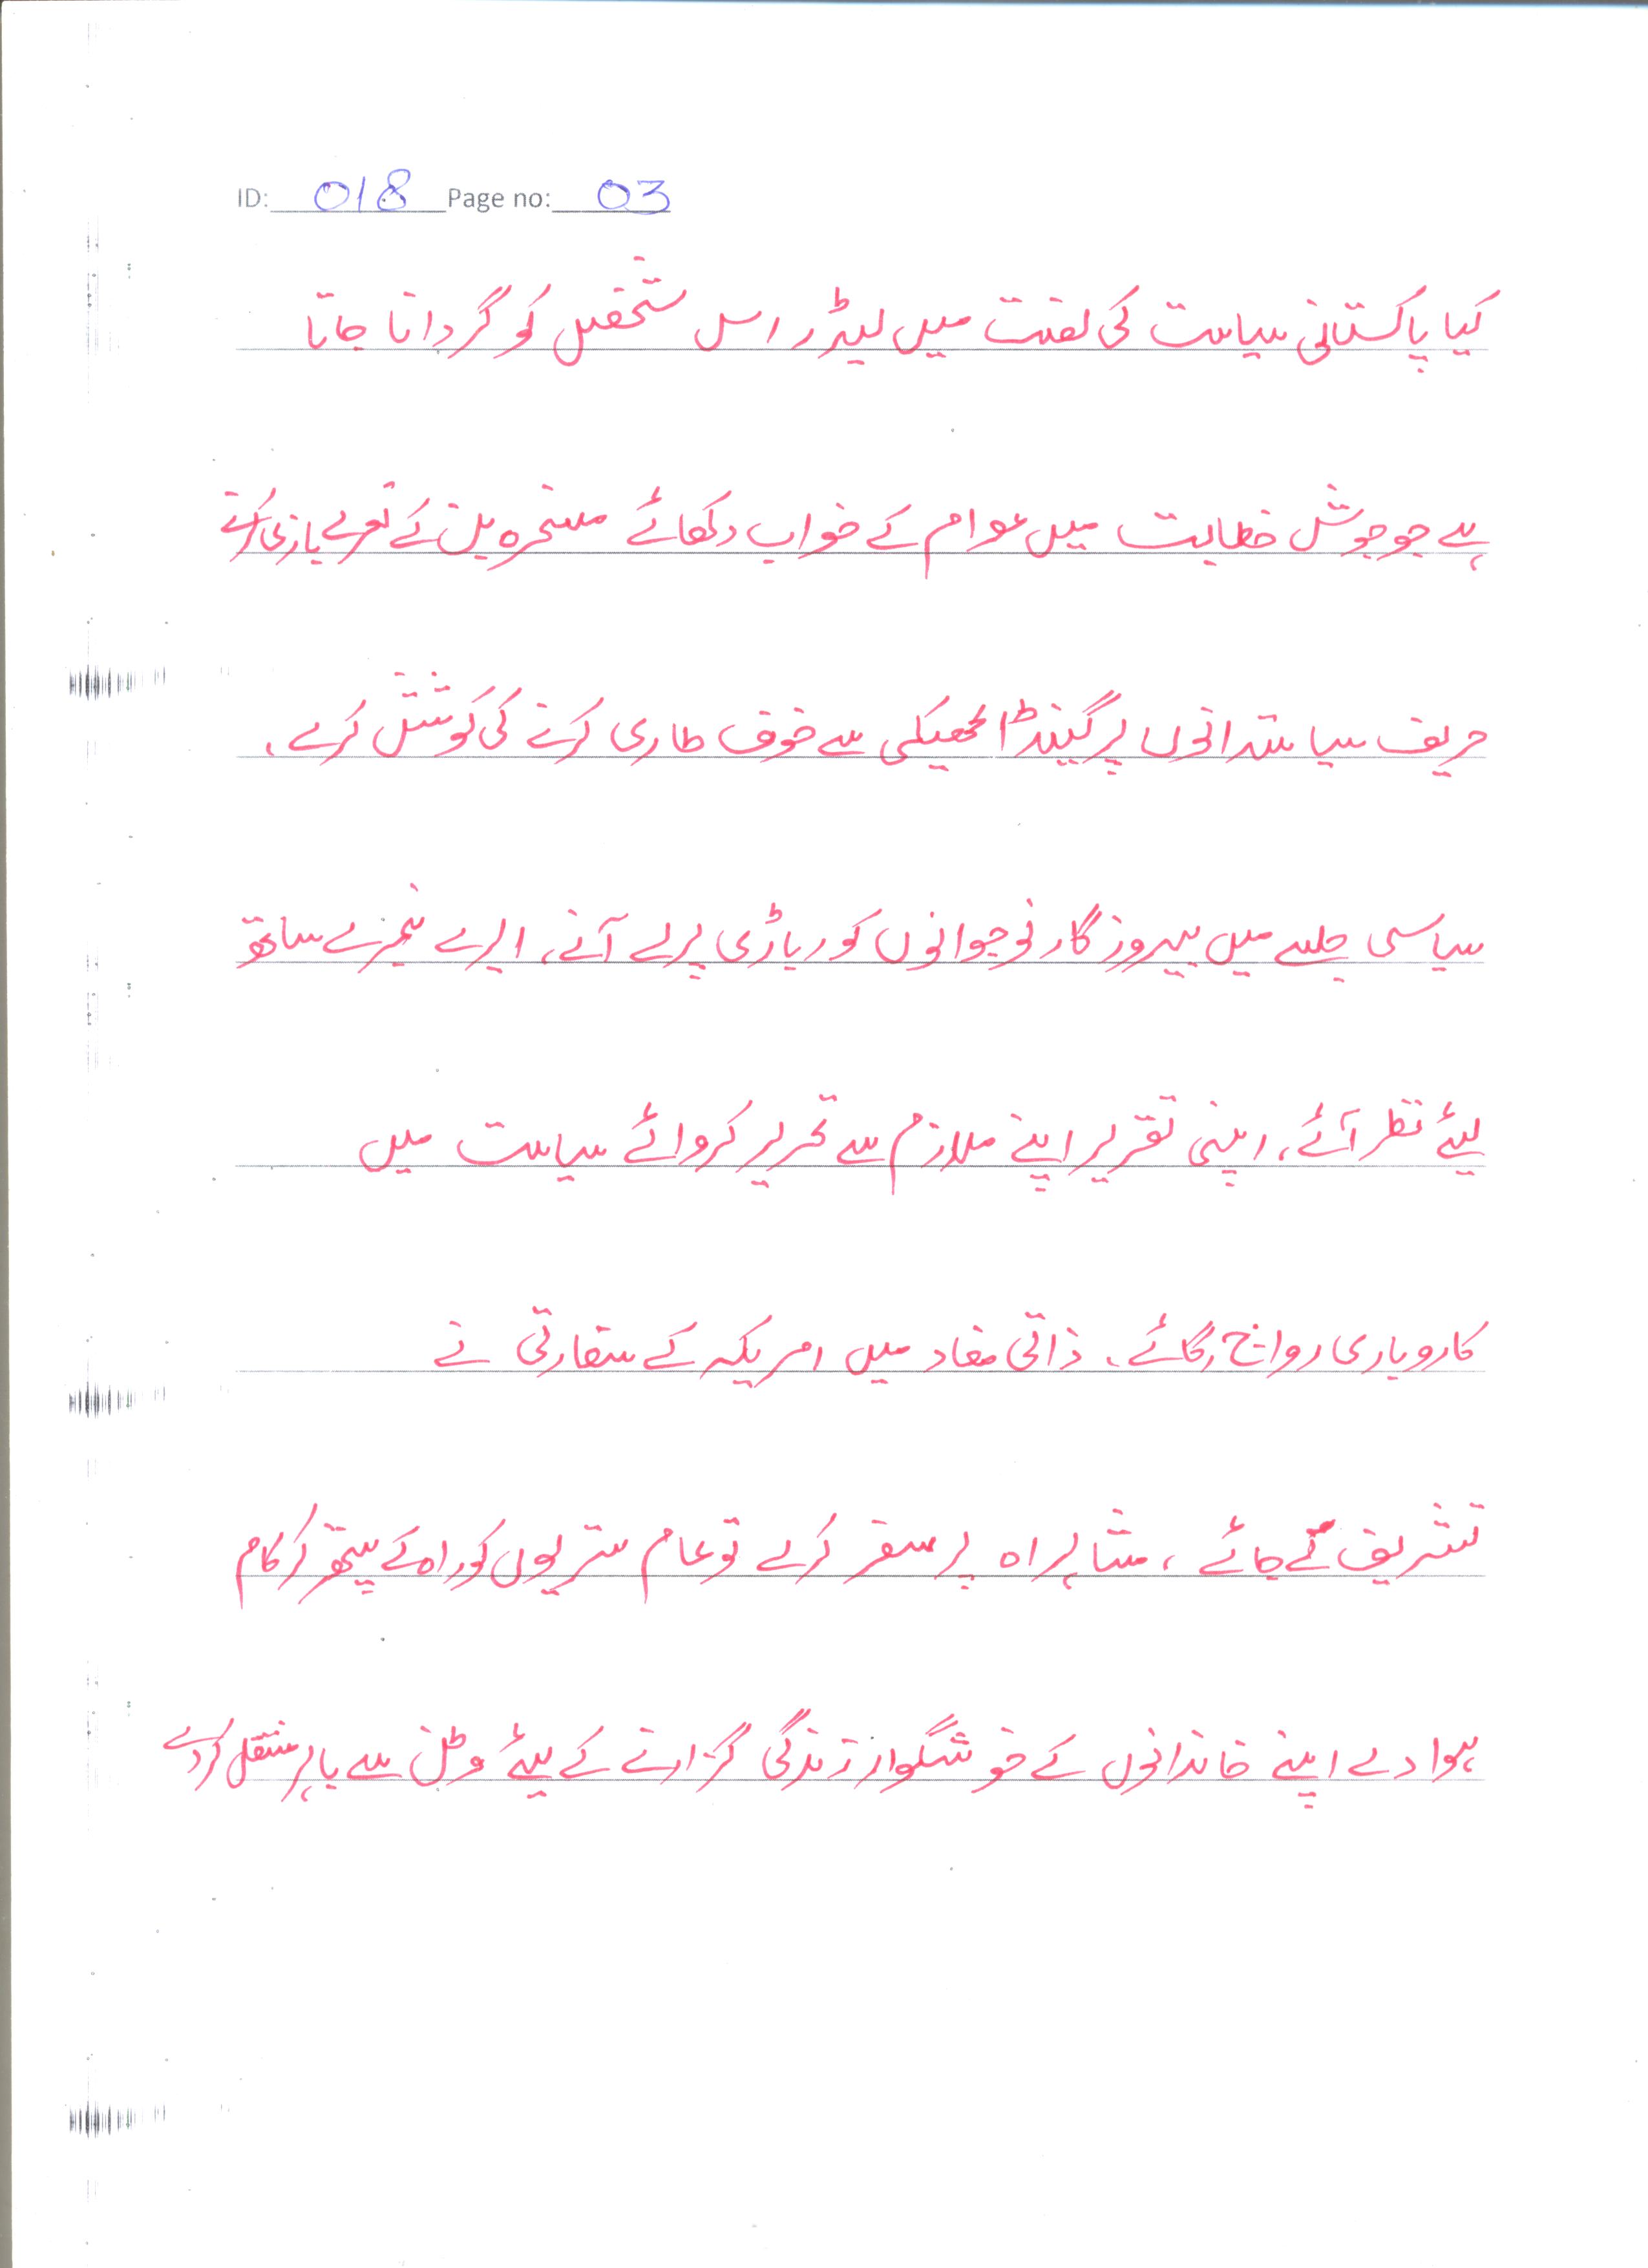 ID: 018 Page no: 03
کیا پاکستانی سیاست کی لغت میں لیڈر اس شخص کو گردانا جاتا
ہے جو جوش خطابت میں عوام کے خواب دکھائے مسخرہ پن کے نعرے بازی کرے
حریف سیاستدانوں پر گینڈا بھبکی سے خوف طاری کرنے کی کوشش کرے،
سیاسی جلسے میں بیروزگار نوجوانوں کو دہاڑی پر لے آئے، ایرے غیرے ساتھ
لیئے نظر آئے، اپنی تقریر اپنے ملازم سے تحریر کروائے سیاست میں
کاروباری رواج رکائے، ذاتی مفاد میں امریکہ کے سفارتی نے
تشریف لے جائے، شاہراہ پر سفر کرے تو عام شہریوں کو راہ کے پتھر کر کام
ہوا دے اپنے خاندانوں کے خوشگوار زندگی گزارنے کے لیئے وطن سے باہر منتقل کر دے